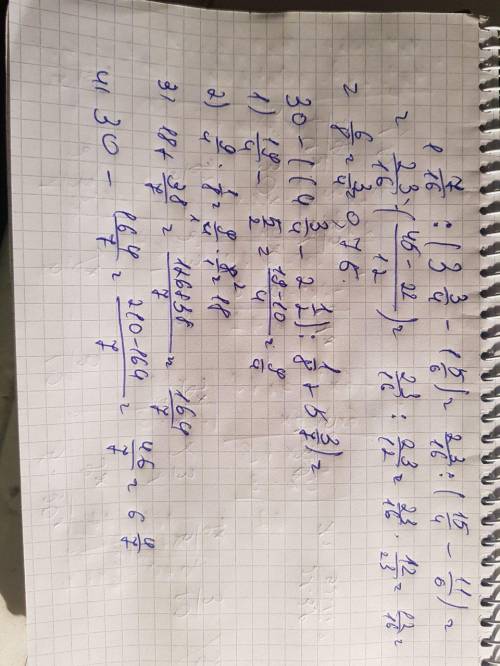 1 7/16 : (3 3/4 - 1 5/6) = 23/16 : (15/4 - 11/6) =
= 23/16 : (45-22/12) = 23/16 : 23/12 = 23/16 · 12/23 = 12/16 =
= 6/8 = 3/4 = 0,75.
30 - ((4 3/4 - 2 1/2) : 1/8 + 5 3/7) =
1) 19/4 - 5/2 = 19-10/4 = 9/4
2) 9/4 : 1/8 = 9/4 · 8/1 = 18
3) 18 + 38/7 = 126+38/7 = 164/7
4) 30 - 164/7 = 210-164/7 = 46/7 = 6 4/7